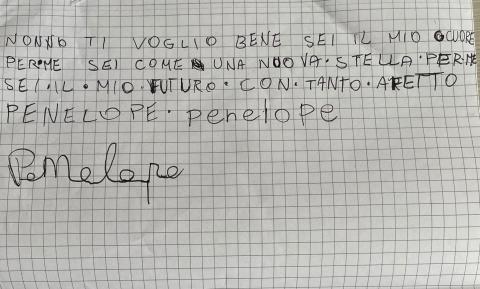 NONNO TI VOGLIO BENE SEI IL MIO CUORE
PER•ME SEI COME UNA NUOVA•STELLA•PER•ME
SEI•IL•MIO•FUTURO•CON•TANTO•AFETTO
PENELOPE• penelope
Penelope